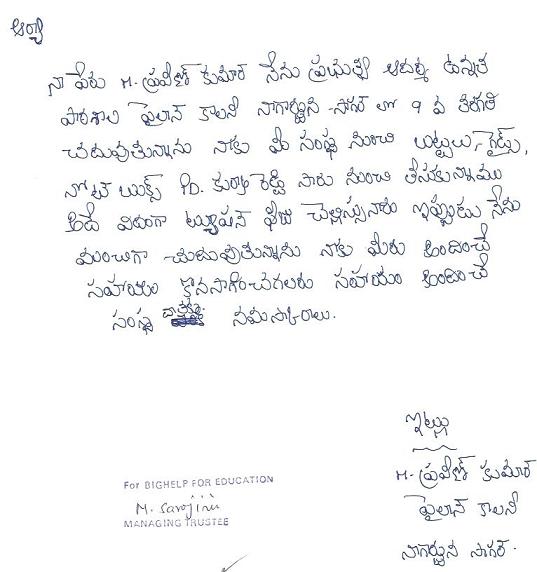 ఆర్యా
నా పేరు M. ప్రవీణ్ కుమార్ నేను ప్రభుత్వ ఆదర్శ ఉన్నత
పాఠశాల పైలాన్ కాలని నాగార్జున సాగర్ లో 9 వ తరగతి
చదువుతున్నాను నాకు మీ సంస్థ నుంచి బట్టలు, గైడ్స్,
నోట్ బుక్స్ P.D. రెడ్డి సారు నుంచి తీసుకున్నాము
ఇదే విదంగా ట్యూషన్ ఫీజు చెల్లిస్తున్నారు ఇప్పుడు నేను
మంచిగా చదువుతున్నాను నాకు మీరు అందించే
సహాయం కొనసాగించగలరు సహాయం అందించే
సంస్థ నమస్కారాలు.
ఇట్లు
M. ప్రవీణ్ కుమార్
పైలాన్ కాలని
నాగార్జున సాగర్.
For BIGHELP FOR EDUCATION
M. Sarojini
MANAGING TRUSTEE